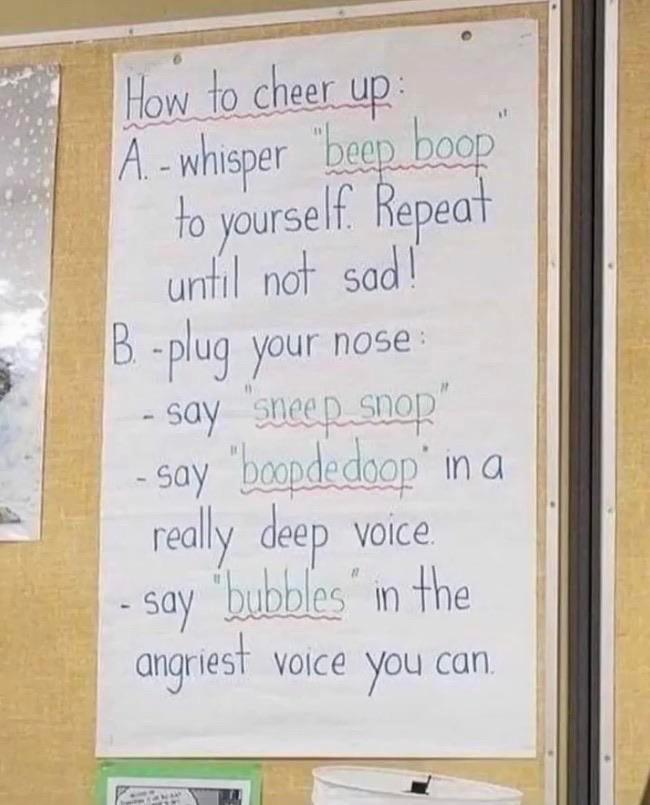 How to cheer up:
A. - whisper "beep boop"
to yourself. Repeat
until not sad!
B. - plug your nose:
- say "sneep snop"
- say "boopdedoop" in a
really deep voice.
- say "bubbles" in the
angriest voice you can.